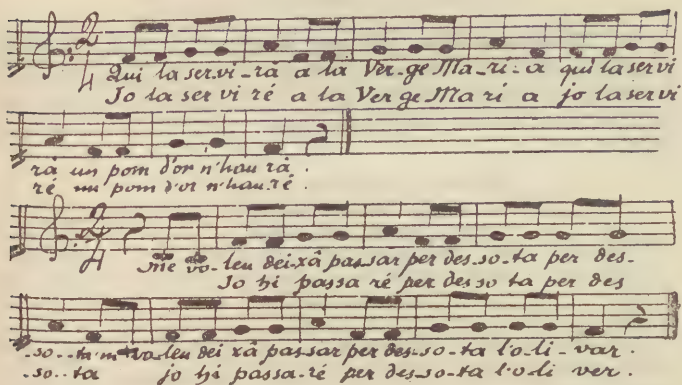 2/4
Qui la ser-vi-rà a la Ver-ge Ma-ri-a qui la servi
Jo la ser vi ré a la Ver ge Ma ri a jo la servi
rà un pom d'or n'hau rà.
ré un pom d'or n'hau.ré.
2/4
me vo-leu dei-xâ pas-sar per des-so-ta per des-
Jo hi passa ré per des so ta per des
-so-ta m vo-leu dei xâ pas-sar per des-so-ta l'o-li-var.
-so-ta jo hi passa-ré per des-so-ta l'o-li ver.